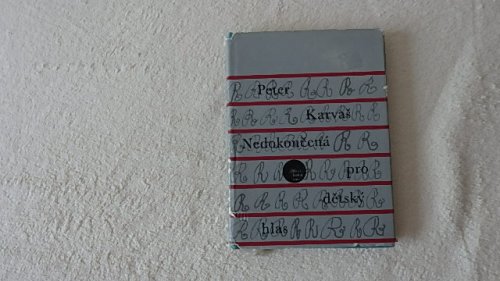 Peter
Karvaš
Nedokončená
pro
dětský
hlas